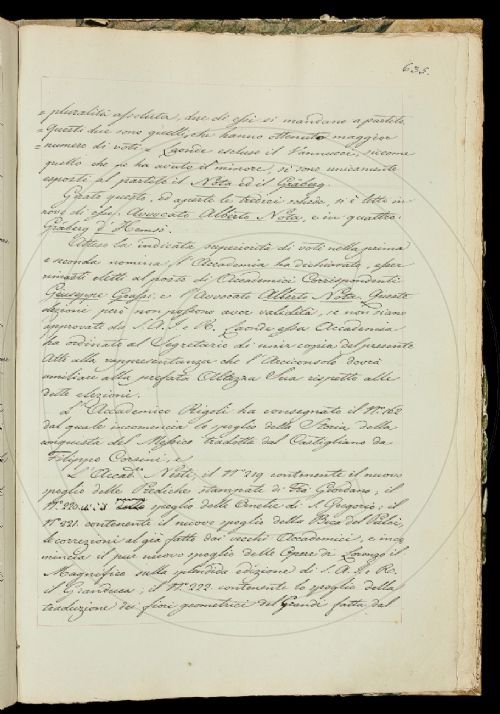 635.
= pluralità assoluta, due di essi si mandano a partito
= Questi due sono quelli, che hanno ottenuto maggior
= numero di voti. Laonde escluso il Vannucci, siccome
quello che ne ha avuto il minore, si sono unicamente
esposti al partito il Nota ed il Gråberg.
Fatto questo, ed aperte le tredici schede, si è letto in
nove di esse, Avvocato Alberto Nota, e in quattro
Gråberg d'Hemsö.
Atteso la indicata superiorità di voti nella prima
e seconda nomina, l'Accademia ha dichiarato, esser
rimasti eletti al posto di Accademici Corrispondenti
Giuseppe Grassi, e l'Avvocato Alberto Nota. Queste
elezioni però non possono aver validità, se non siano
approvate da S. A. I. e R. Laonde essa Accademia
ha ordinato al Segretario di unir copia del presente
Atto alla rappresentanza che l'Arciconsolo dovrà
umiliare alla prefata Altezza Sua rispetto alle
dette elezioni.
L'Accademico Rigoli ha consegnato il N.º 162
dal quale incomincia lo spoglio della Storia della
conquista del Messico tradotta dal Castigliano da
Filippo Corsini; e
l'Accad.co Nesti, il N.º 219 contenente il nuovo
spoglio delle Prediche stampate di Frà Giordano, il
N.º 220 spoglio delle Omelie di S. Gregorio; il
N.º 221. contenente il nuovo spoglio della Beca del Pulci,
le correzioni al già fatto dai vecchi Accademici, e inco
mincia il pur nuovo spoglio delle Opere di Lorenzo il
Magnifico sulla splendida edizione di S. A. I. e R.
il Granduca; il N.º 222 contenente lo spoglio della
traduzione dei fiori geometrici del Grandi fatta dal